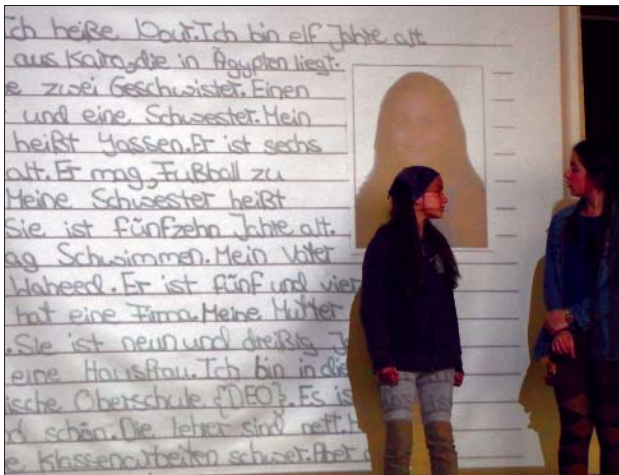 Ich heiße Nour. Ich bin elf Jahre alt
aus Kairo, die in Ägypten liegt.
zwei Geschwister. Einen
und eine Schwester. Mein
heißt Yassen. Er ist sechs
alt. Er mag, Fußball zu
Meine Schwester heißt
Sie ist fünfzehn Jahre alt.
Schwimmen. Mein Vater
Waheed. Er ist fünf und vier
hat eine Firma. Meine Mutter
Sie ist neun und dreißig
eine Hausfrau. Ich bin in die
ische Oberschule {DEO}. Es ist
schön. Die lehrer sind nett.
Klassenarbeiten schwer. Aber